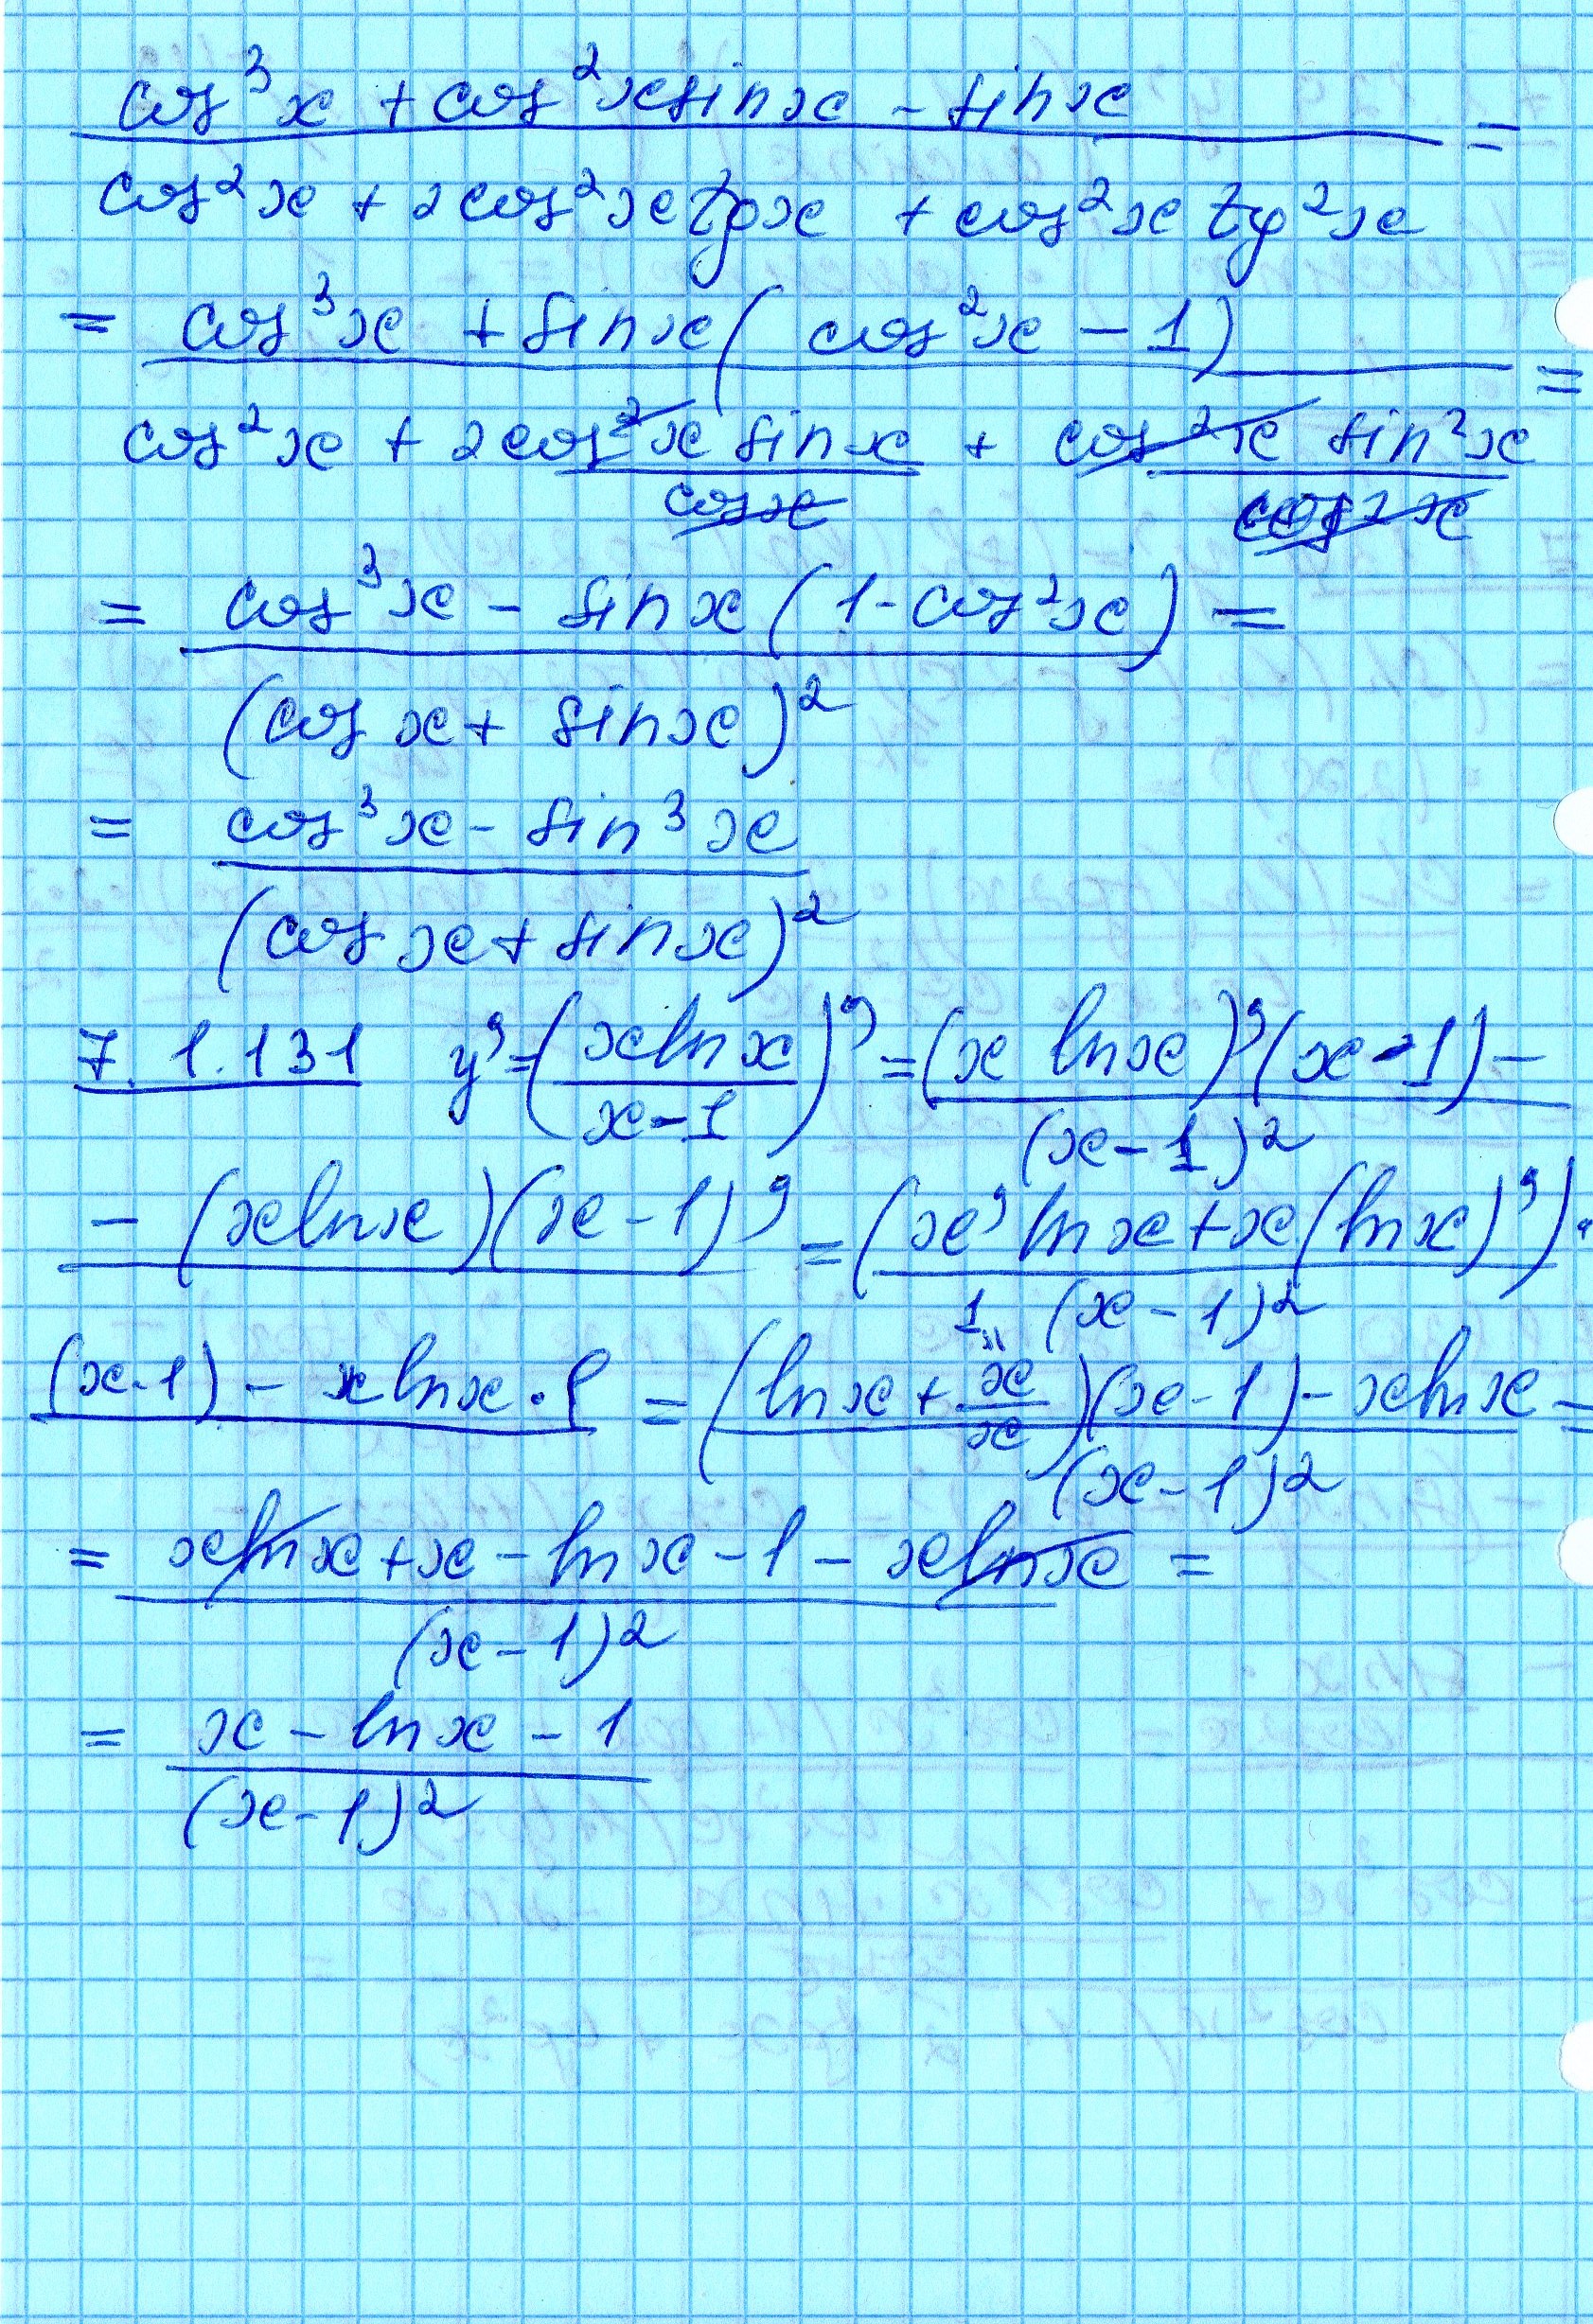 cos³x + cos²x sinx - sinx =
cos²x + 2cos²x tgx + cos²x tg²x
= cos³x + sinx ( cos²x - 1 ) =
cos²x + 2cos²x sinx + cos²x sin²x
cosx cos²x
= cos³x - sinx ( 1 - cos²x ) =
( cosx + sinx )²
= cos³x - sin³x
( cosx + sinx )²
7.1.131 y' = ( xlnx )' = ( x lnx )' ( x - 1 ) -
x - 1 ( x - 1 )²
- ( xlnx ) ( x - 1 )' = ( x' lnx + x ( lnx )' ) ·
1 ( x - 1 )²
( x - 1 ) - xlnx · 1 = ( lnx + x ) ( x - 1 ) - xlnx =
x ( x - 1 )²
= xlnx + x - lnx - 1 - xlnx =
( x - 1 )²
= x - lnx - 1
( x - 1 )²